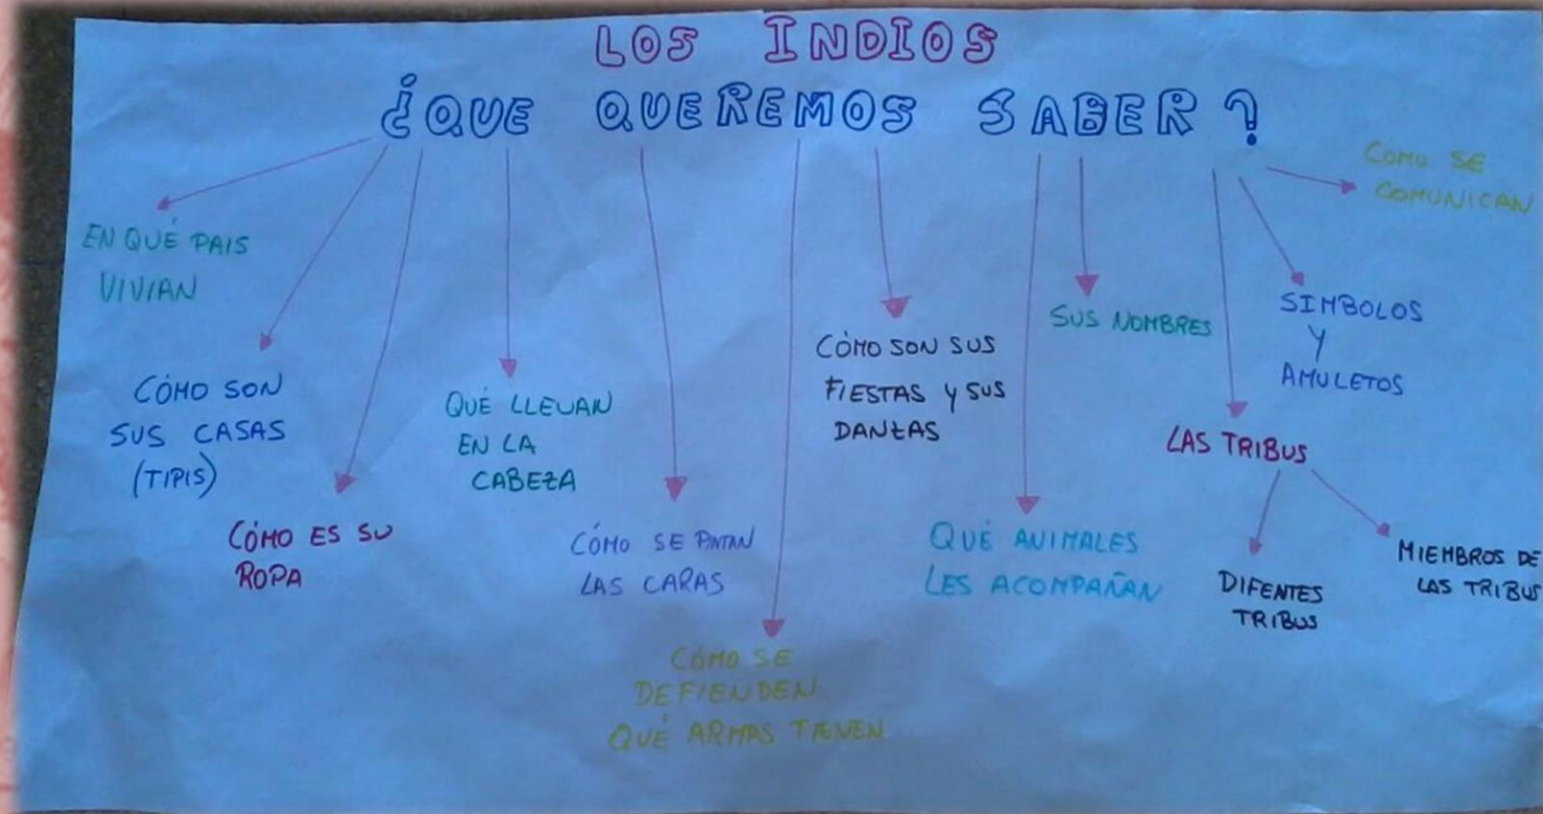 LOS INDIOS
¿QUE QUEREMOS SABER?
EN QUÉ PAIS
VIVIAN
CÓMO SON
SUS CASAS
(TIPIS)
CÓMO ES SU
ROPA
QUÉ LLEVAN
EN LA
CABEZA
CÓMO SE PINTAN
LAS CARAS
CÓMO SE
DEFIENDEN.
QUÉ ARMAS TIENEN
CÓMO SON SUS
FIESTAS Y SUS
DANZAS
QUÉ ANIMALES
LES ACOMPAÑAN
SUS NOMBRES
LAS TRIBUS
DIFENTES
TRIBUS
MIEMBROS DE
LAS TRIBUS
SIMBOLOS
Y
AMULETOS
CÓMO SE
COMUNICAN